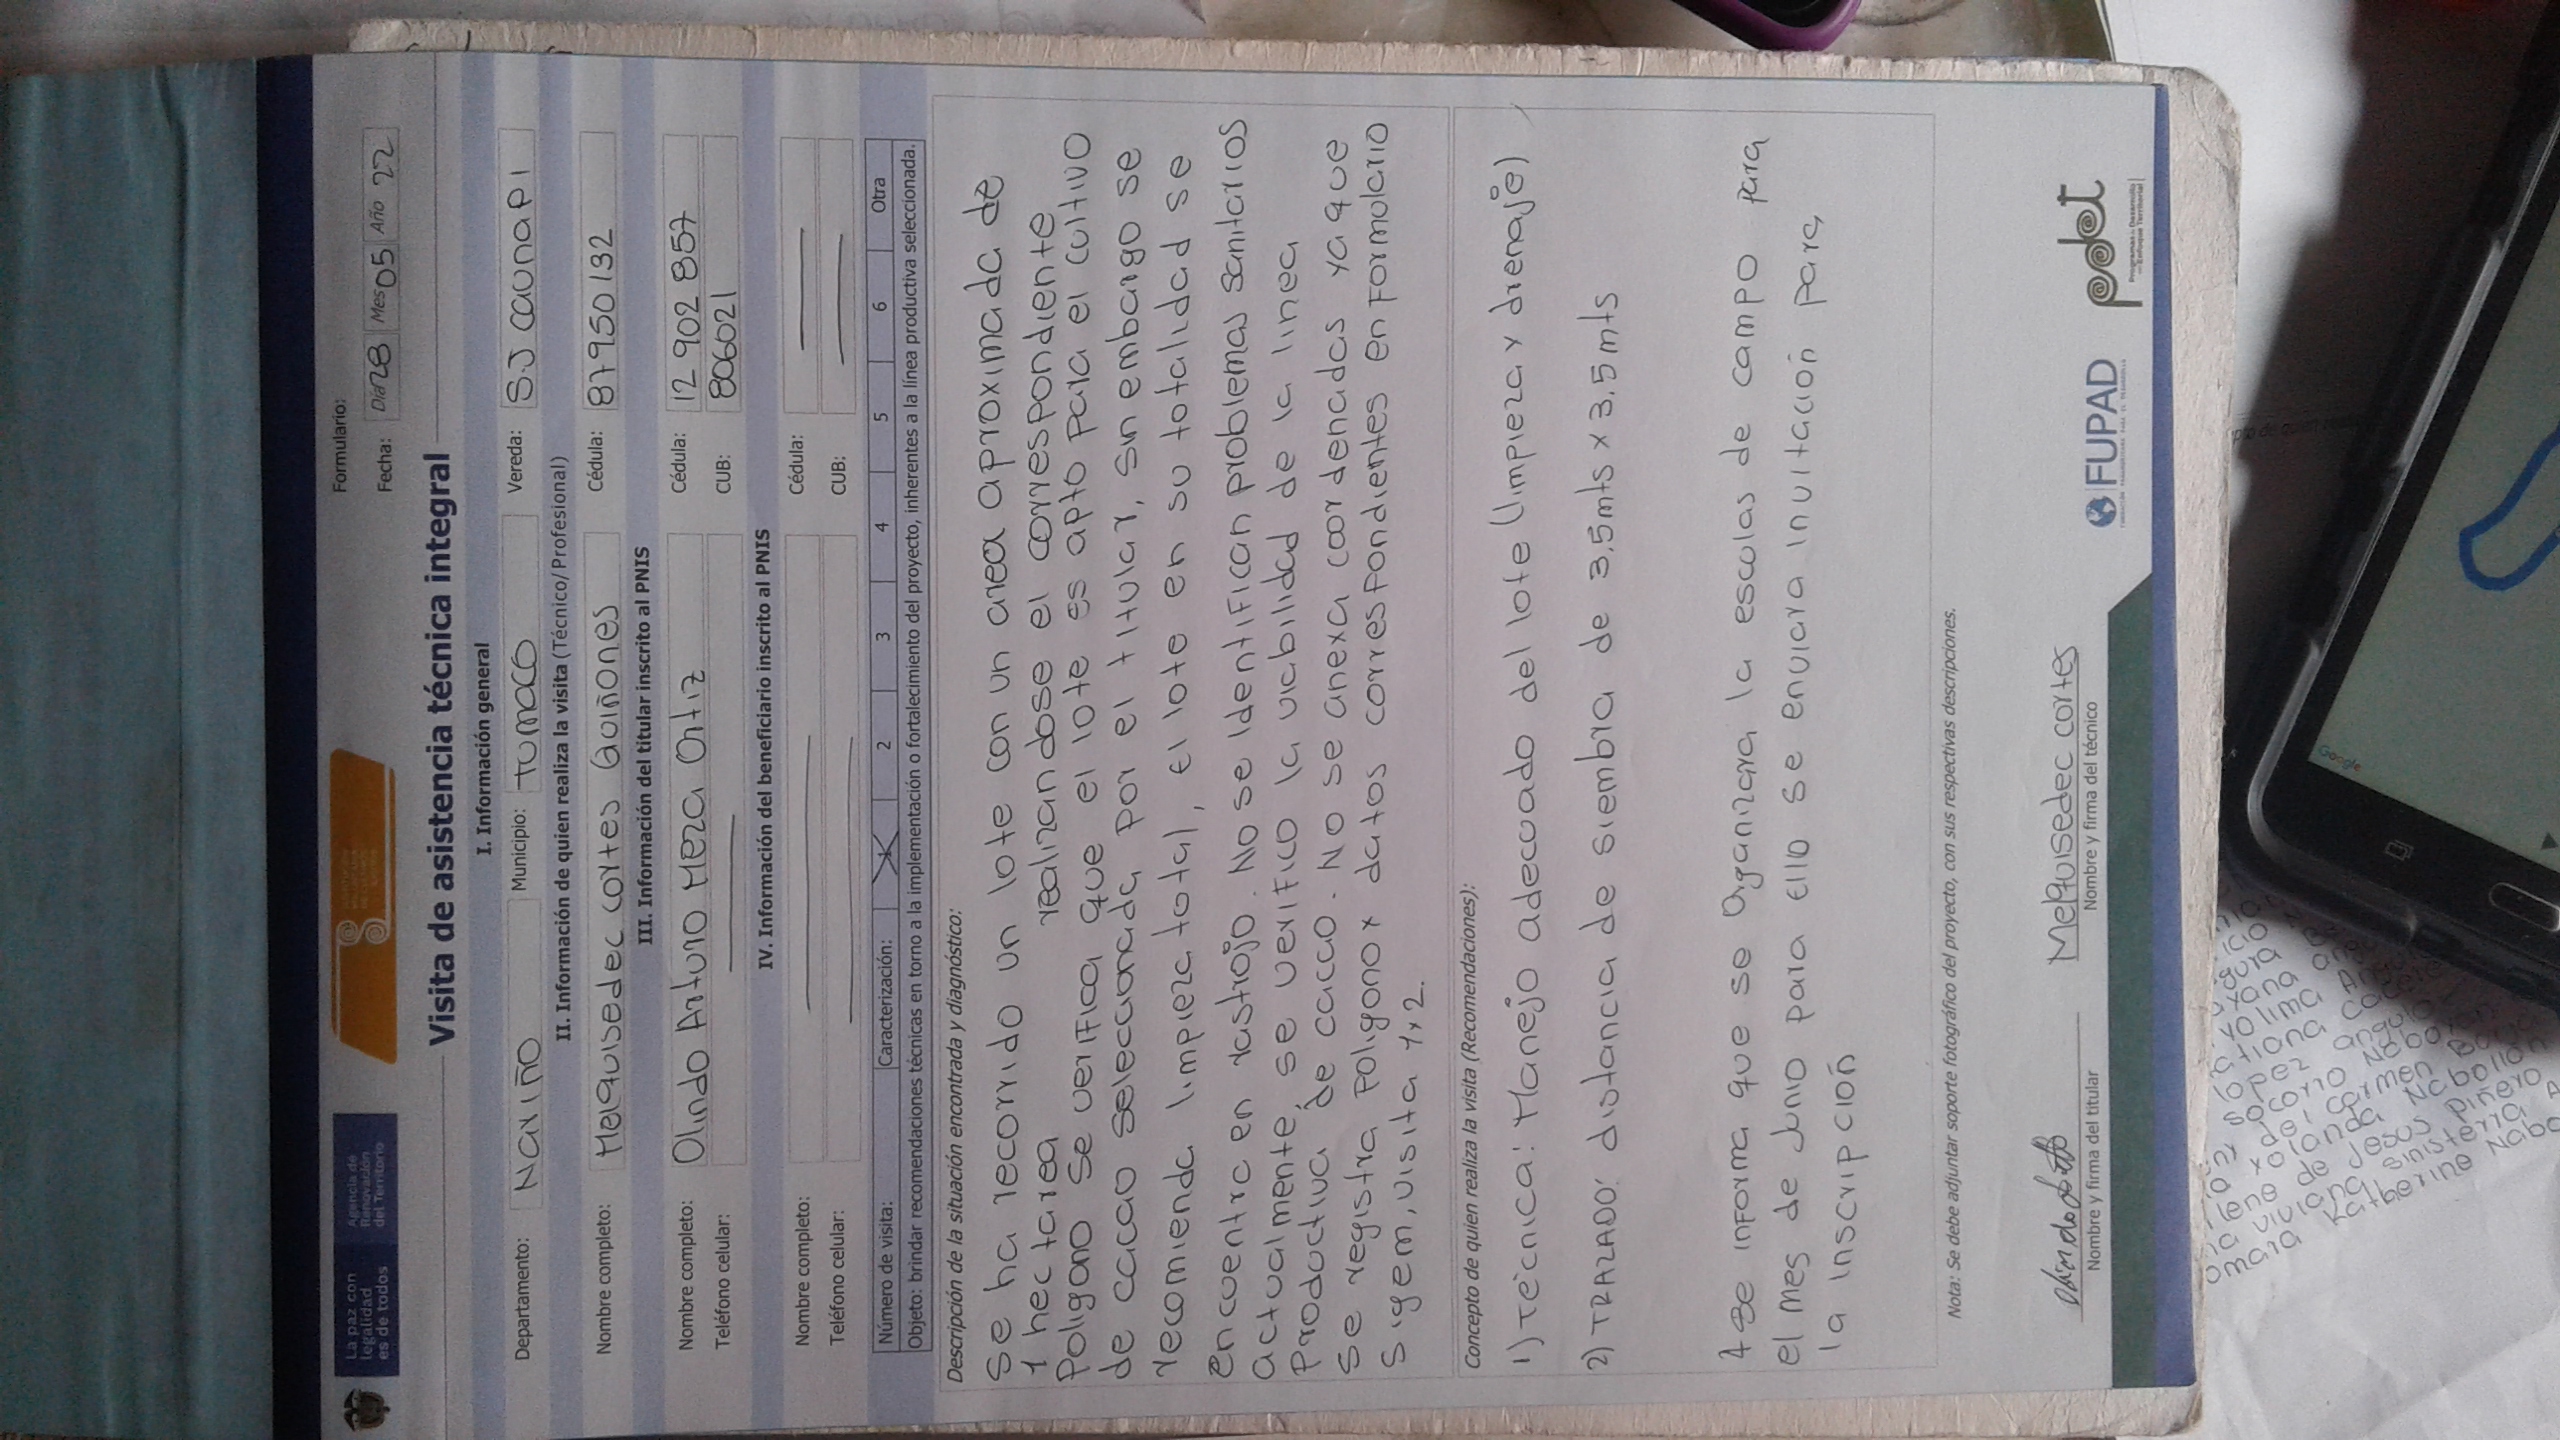 La paz con
legalidad
es de todos
Agencia de
Renovación
del Territorio
Formulario:
Fecha: Día 28 Mes 05 Año 22
Visita de asistencia técnica integral
I. Información general
Departamento: Nariño Municipio: tumaco Vereda: S.J caunapi
II. Información de quien realiza la visita (Técnico/Profesional)
Nombre completo: Melquisedec cortes Quiñones Cédula: 87950132
III. Información del titular inscrito al PNIS
Nombre completo: Olindo Arturo Meza Ortiz Cédula: 12 902 857
Teléfono celular: CUB: 806021
IV. Información del beneficiario inscrito al PNIS
Nombre completo: Cédula:
Teléfono celular: CUB:
Número de visita: Caracterización: X 2 3 4 5 6 Otra
Objeto: brindar recomendaciones técnicas en torno a la implementación o fortalecimiento del proyecto, inherentes a la línea productiva seleccionada.
Descripción de la situación encontrada y diagnóstico:
Se ha recorrido un lote con un area aproximada de
1 hectarea realizandose el correspondiente
Poligono se verifica que el lote es apto para el cultivo
de cacao seleccionada por el titular, sin embargo se
recomienda limpieza total, El lote en su totalidad se
encuentra en rastrojo. No se identifican problemas sanitarios
actualmente, se verifico la viabilidad de la linea
Productiva de cacao. No se anexa coordenadas ya que
se registra poligono y datos correspondientes en formulario
sigem, visita 1 y 2.
Concepto de quien realiza la visita (Recomendaciones):
1) Técnica: Manejo adecuado del lote (limpieza y drenaje)
2) TRAZADO: distancia de siembra de 3,5mts x 3,5mts
Se informa que se Organizara la escuelas de campo para
el mes de Junio para Ello se enviara invitación para
la inscripción
Nota: Se debe adjuntar soporte fotográfico del proyecto, con sus respectivas descripciones.
Melquisedec cortes
Nombre y firma del titular Nombre y firma del técnico
FUPAD
pdet
Programas de Desarrollo
con Enfoque Territorial
Google